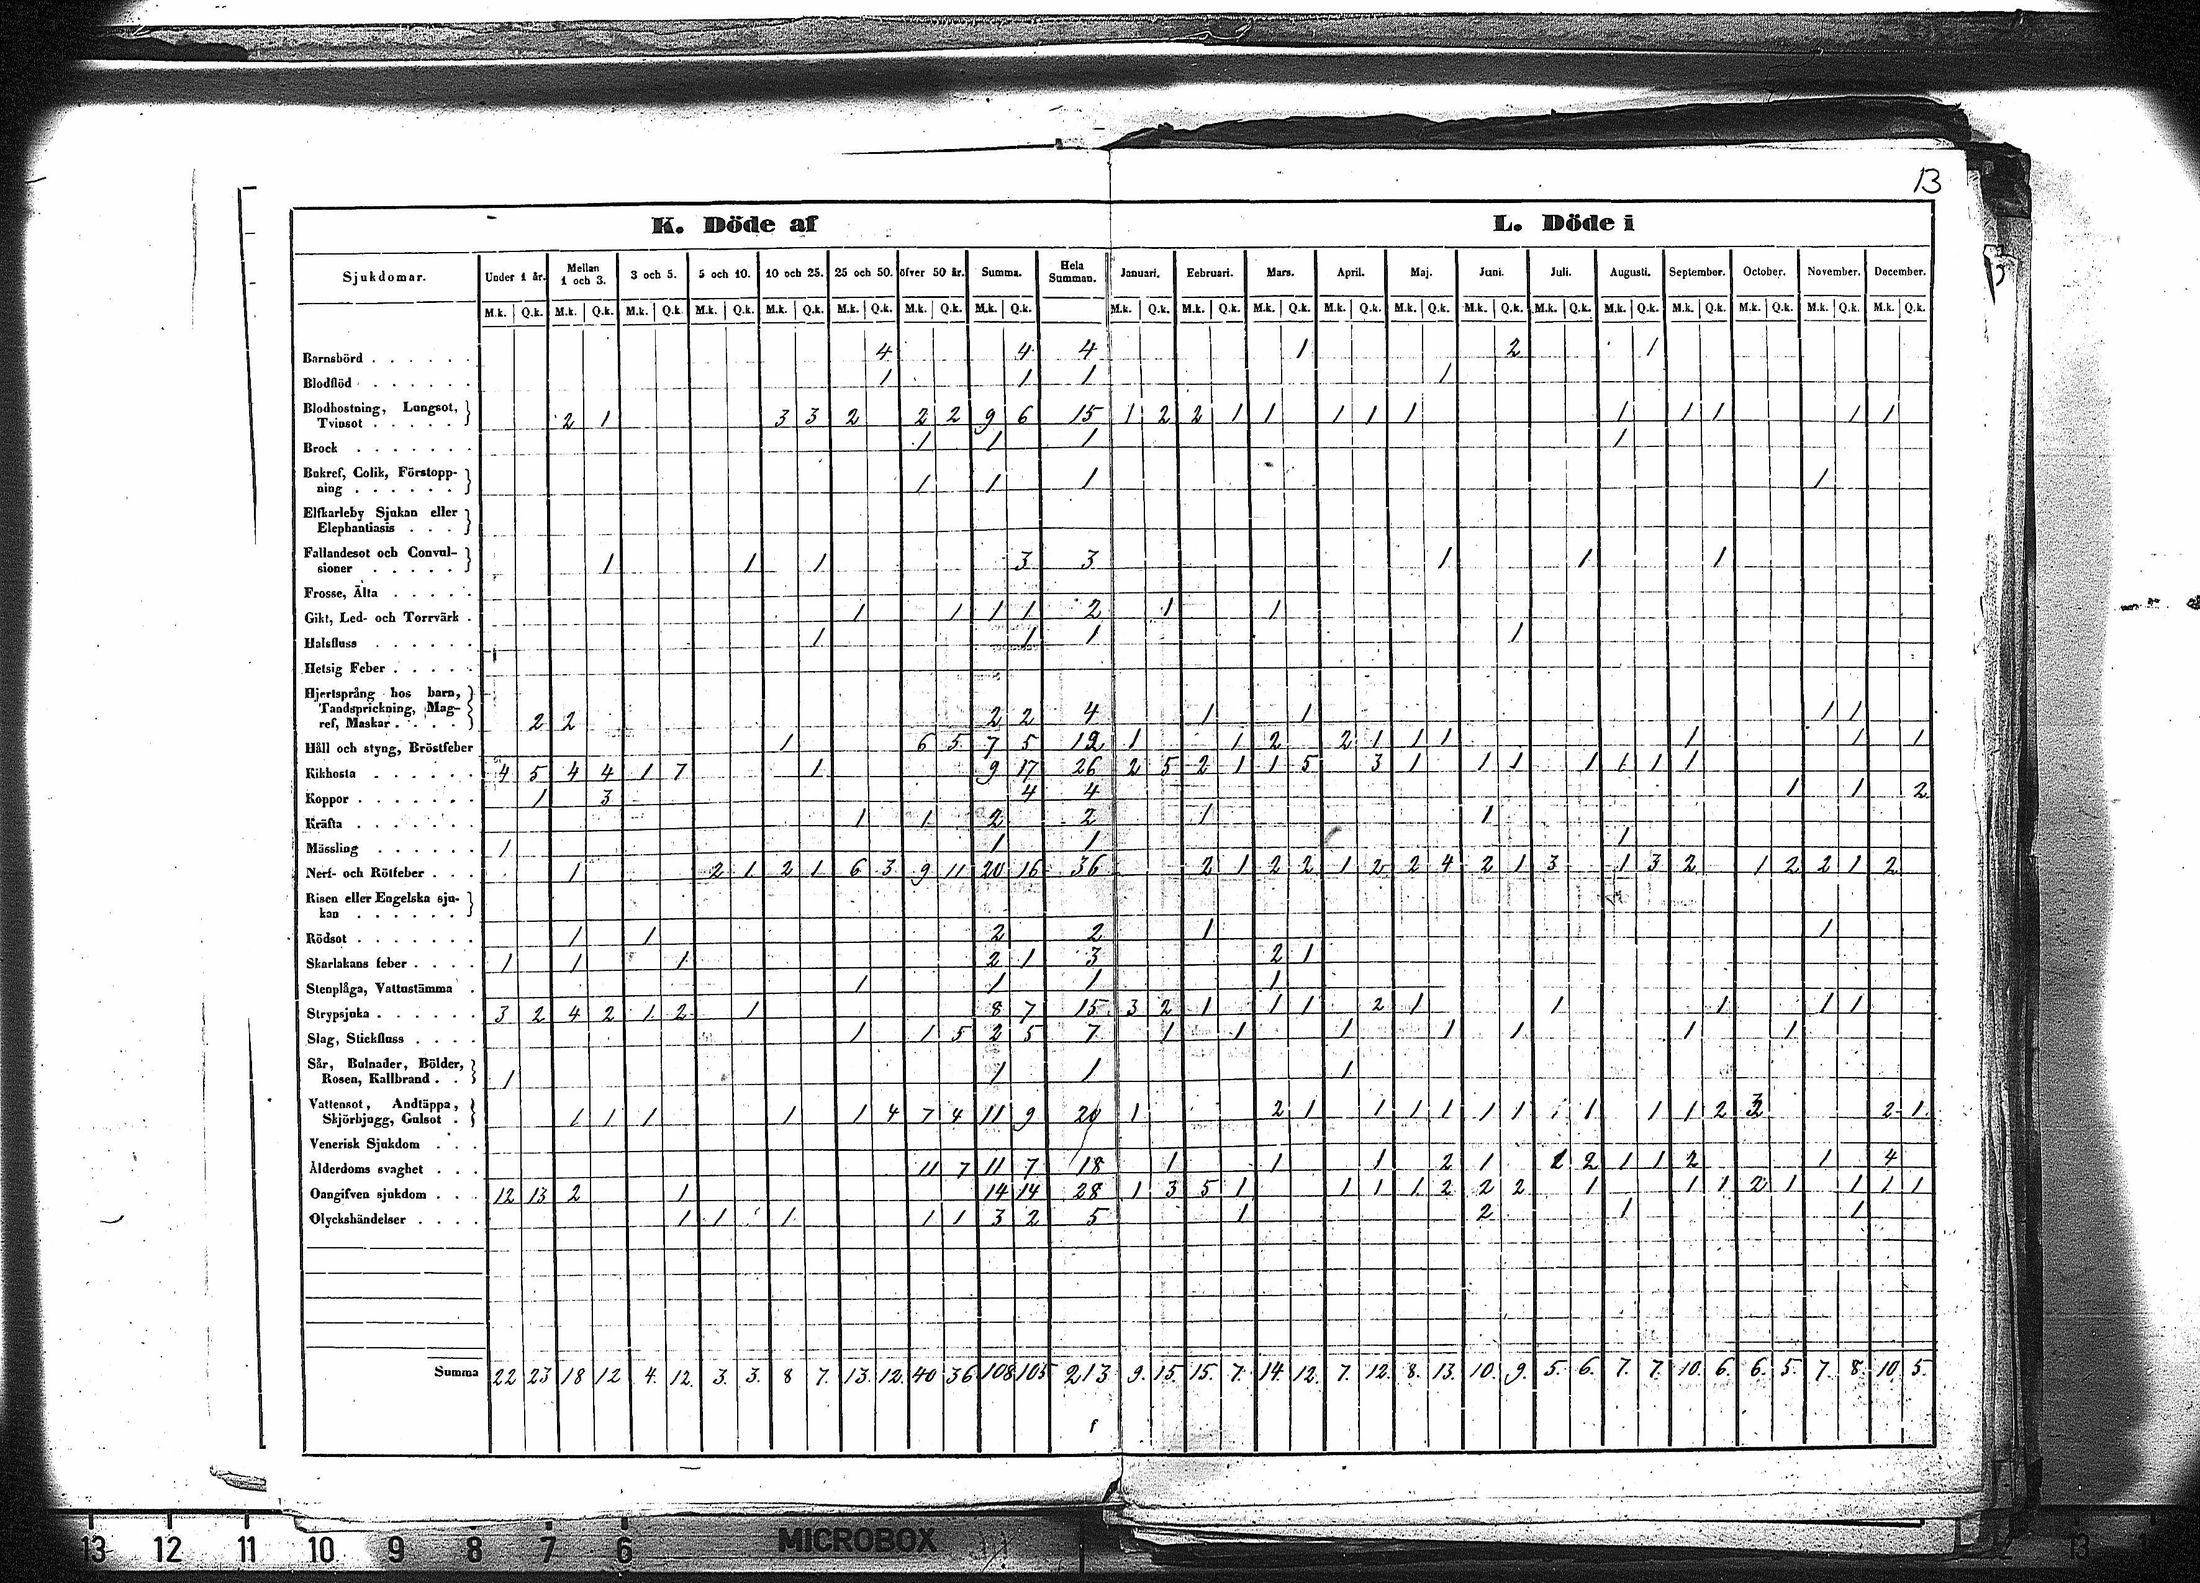 13
K. Döde af L. Döde i
Sjukdomar. Under 1 år. Mellan 1 och 3. 3 och 5. 5 och 10. 10 och 25. 25 och 50. öfver 50 år. Summa. Hela Summan. Januari. Eebruari. Mars. April. Maj. Juni. Juli. Augusti. September. October. November. December.
M.k. Q.k. M.k. Q.k. M.k. Q.k. M.k. Q.k. M.k. Q.k. M.k. Q.k. M.k. Q.k. M.k. Q.k. M.k. Q.k. M.k. Q.k. M.k. Q.k. M.k. Q.k. M.k. Q.k. M.k. Q.k. M.k. Q.k. M.k. Q.k. M.k. Q.k. M.k. Q.k. M.k. Q.k. M.k. Q.k.
Barnsbörd 4 4 4 1 2 1
Blodflöd 1 1 1 1
Blodhostning, Lungsot,
Tvinsot 2 1 3 3 2 2 2 9 6 15 1 2 2 1 1 1 1 1 1 1 1 1 1
Brock 1 1 1 1
Bukref, Colik, Förstopp-
ning 1 1 1 1
Elfkarleby Sjukan eller
Elephantiasis
Fallandesot och Convul-
sioner 1 1 1 3 3 1 1 1
Frosse, Älta
Gikt, Led- och Torrvärk 1 1 1 1 2 1 1
Halsfluss 1 1 1 1
Hetsig Feber
Hjertsprång hos barn,
Tandsprickning, Mag-
ref, Maskar 2 2 2 2 4 1 1 1 1
Håll och styng, Bröstfeber 1 6 5 7 5 12 1 1 2 2 1 1 1 1 1 1
Kikhosta 4 5 4 4 1 7 1 9 17 26 2 5 2 1 1 5 3 1 1 1 1 1 1 1
Koppor 1 3 4 4 1 1 2
Kräfta 1 1 2 2 1 1
Mässling 1 1 1 1
Nerf- och Rötfeber 1 2 1 2 1 6 3 9 11 20 16 36 2 1 2 2 1 2 2 4 2 1 3 1 3 2 1 2 2 1 2
Risen eller Engelska sju-
kan
Rödsot 1 1 2 2 1 1
Skarlakans feber 1 1 1 2 1 3 2 1
Stenplåga, Vattustämma 1 1 1 1
Strypsjuka 3 2 4 2 1 2 1 8 7 15 3 2 1 1 1 2 1 1 1 1 1
Slag, Stickfluss 1 1 5 2 5 7 1 1 1 1 1 1 1
Sår, Bulnader, Bölder,
Rosen, Kallbrand 1 1 1 1
Vattensot, Andtäppa,
Skjörbjugg, Gulsot 1 1 1 1 1 4 7 4 11 9 20 1 2 1 1 1 1 1 1 1 1 1 1 2 2 2 1
Venerisk Sjukdom
Ålderdoms svaghet 11 7 11 7 18 1 1 1 2 1 2 2 1 1 2 1 4
Oangifven sjukdom 12 13 2 1 14 14 28 1 3 5 1 1 1 1 2 2 2 1 1 1 2 1 1 1 1
Olyckshändelser 1 1 1 1 1 3 2 5 1 2 1 1
Summa 22 23 18 12 4. 12. 3. 3. 8 7. 13. 12. 40 36 108 105 213 9. 15. 15. 7. 14. 12. 7. 12. 8. 13. 10. 9. 5. 6. 7. 7. 10. 6. 6. 5. 7. 8. 10. 5.
13 12 11 10 9 8 7 6 MICROBOX 13